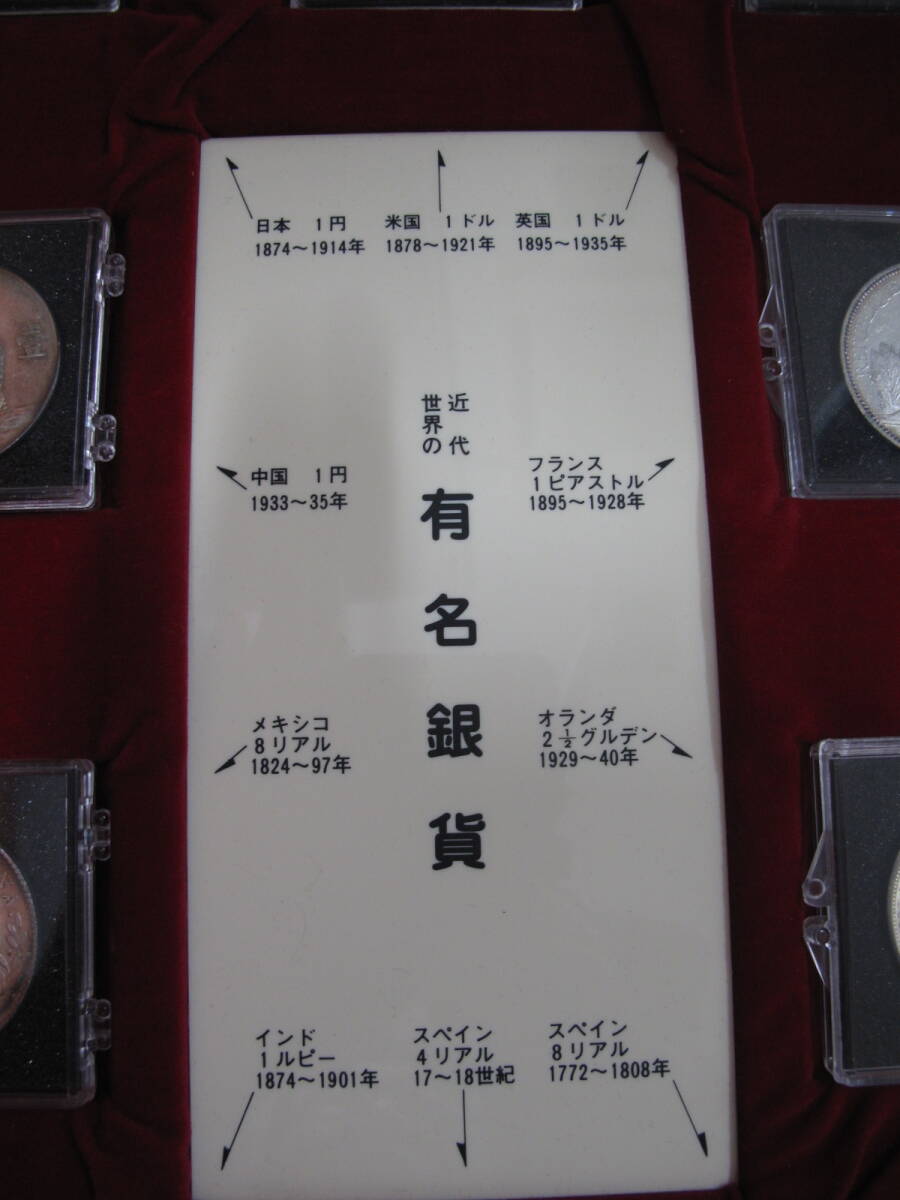 日本 1円
1874～1914年
米国 1ドル
1878～1921年
英国 1ドル
1895～1935年
近代
世界の
有名銀貨
中国 1円
1933～35年
フランス
1ピアストル
1895～1928年
メキシコ
8リアル
1824～97年
オランダ
2½グルデン
1929～40年
インド
1ルピー
1874～1901年
スペイン
4リアル
17～18世紀
スペイン
8リアル
1772～1808年